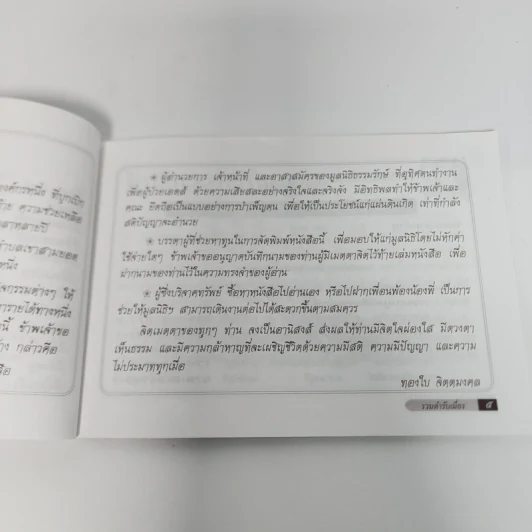 องค์กรหนึ่ง ที่บุกเบิก
ความช่วยเหลือ
สามยอด
หนึ่ง
กรรมต่างๆ ให้
รายได้ทางหนึ่ง
นี้ ข้าพเจ้าขอ
กล่าวคือ
ผู้อำนวยการ เจ้าหน้าที่ และอาสาสมัครของมูลนิธิธรรมรักษ์ ที่อุทิศตนทำงาน
เพื่อผู้ป่วยเอดส์ ด้วยความเสียสละอย่างจริงใจและจริงจัง มีอิทธิพลทำให้ข้าพเจ้าและ
คณะ ยึดถือเป็นแบบอย่างการบำเพ็ญตน เพื่อให้เป็นประโยชน์แก่แผ่นดินเกิด เท่าที่กำลัง
สติปัญญาจะอำนวย
บรรดาผู้ที่ช่วยหาทุนในการจัดพิมพ์หนังสือนี้ เพื่อมอบให้แก่มูลนิธิโดยไม่หักค่า
ใช้จ่ายใดๆ ข้าพเจ้าขออนุญาตบันทึกนามของท่านผู้มีเมตตาจิตไว้ท้ายเล่มหนังสือ เพื่อ
ฝากนามของท่านไว้ในความทรงจำของผู้อ่าน
ผู้ซึ่งบริจาคทรัพย์ ซื้อหาหนังสือไปอ่านเอง หรือไปฝากเพื่อนพ้องน้องพี่ เป็นการ
ช่วยให้มูลนิธิฯ สามารถเดินงานต่อไปได้สะดวกขึ้นตามสมควร
จิตเมตตาของทุกๆ ท่าน จงเป็นอานิสงส์ ส่งผลให้ท่านมีจิตใจผ่องใส มีดวงตา
เห็นธรรม และมีความกล้าหาญที่จะเผชิญชีวิตด้วยความมีสติ ความมีปัญญา และความ
ไม่ประมาททุกเมื่อ
ทองใบ จิตตมงคล
รวมตำรับเมี่ยง